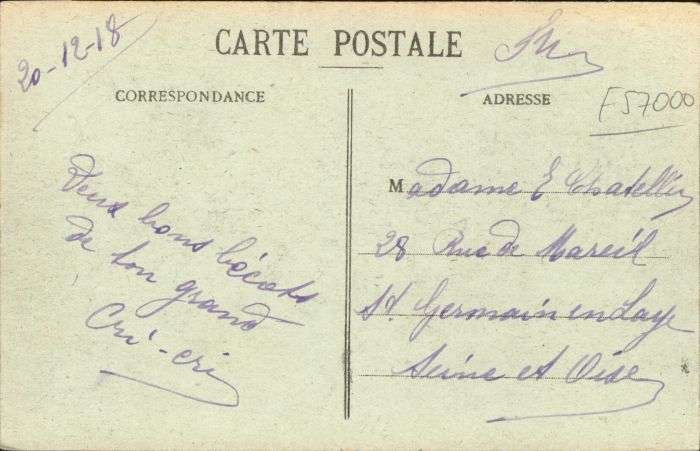 20-12-18
CARTE POSTALE
CORRESPONDANCE
ADRESSE
F57000
Deux bons bécots
de ton grand
Cri-cri
Madame E Chatellier
28 Rue de Mareil
St. Germain en Laye
Seine et Oise